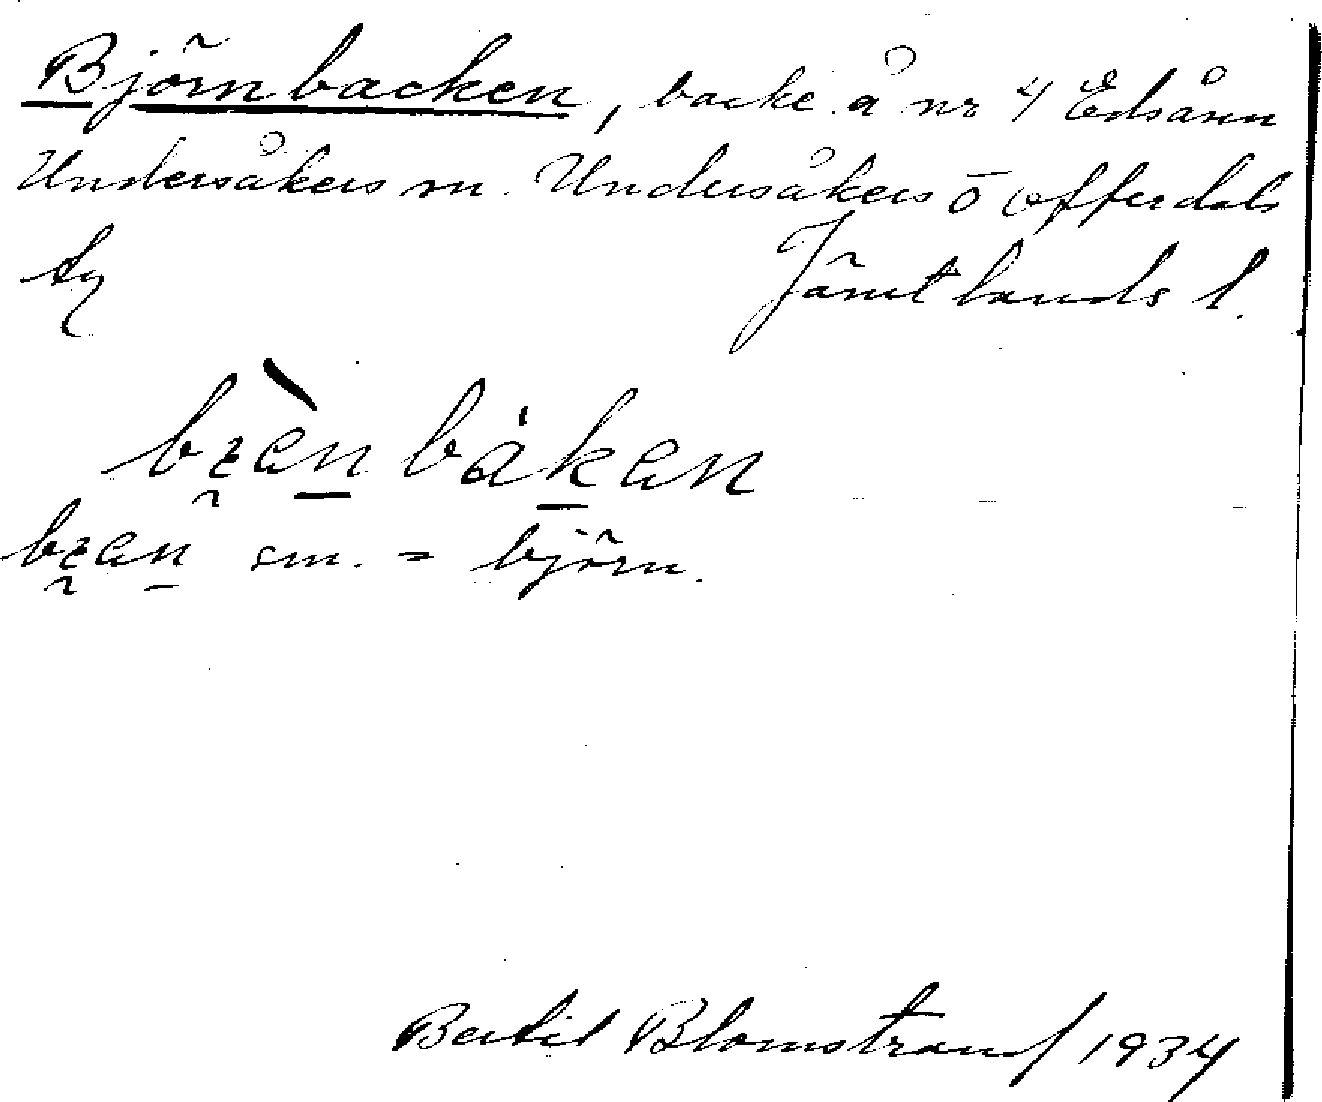 Björnbacken, backe å nr 4 Edsånn
Undersåkers sn. Undersåkers o Offerdals
tg Jämtlands l.
bȥænbákan
bȥæn sm. = björn.
Bertil Blomstrand 1934